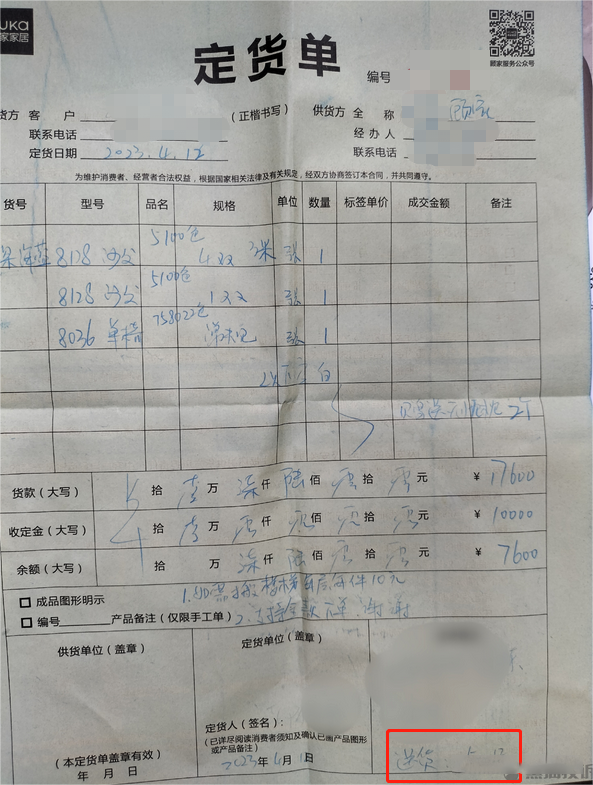 UKA
家家居
定货单
顾家服务公众号
编号
货方 客 户
(正楷书写)
供货方 全 称 顾家
联系电话
经 办 人
定货日期 2023.4.1
联系电话
为维护消费者、经营者合法权益，根据国家相关法律及有关规定，经双方协商签订本合同，并共同遵守。
货号 型号 品名 规格 单位 数量 标签单价 成交金额 备注
8128 沙发 5100色 4双 张 1
8128 沙发 5100色 1双 张 1
8036 单椅 758022色 张 1
以下空白
2个
货款（大写） 拾 壹 万 柒 仟 陆 佰 零 拾 零 元 ¥ 17600
收定金（大写） 拾 壹 万 零 仟 零 佰 零 拾 零 元 ¥ 10000
余额（大写） 拾 万 柒 仟 陆 佰 零 拾 零 元 ¥ 7600
1.如需搬楼梯每层每件10元
成品图形明示
编号 产品备注（仅限手工单） 2. 谢谢
供货单位（盖章）
定货单位（盖章）
定货人（签名）：
(已详尽阅读消费者须知及确认已画产品图形
或产品备注)
(本定货单盖章有效)
年 月 日
2023年4月1日
送货：